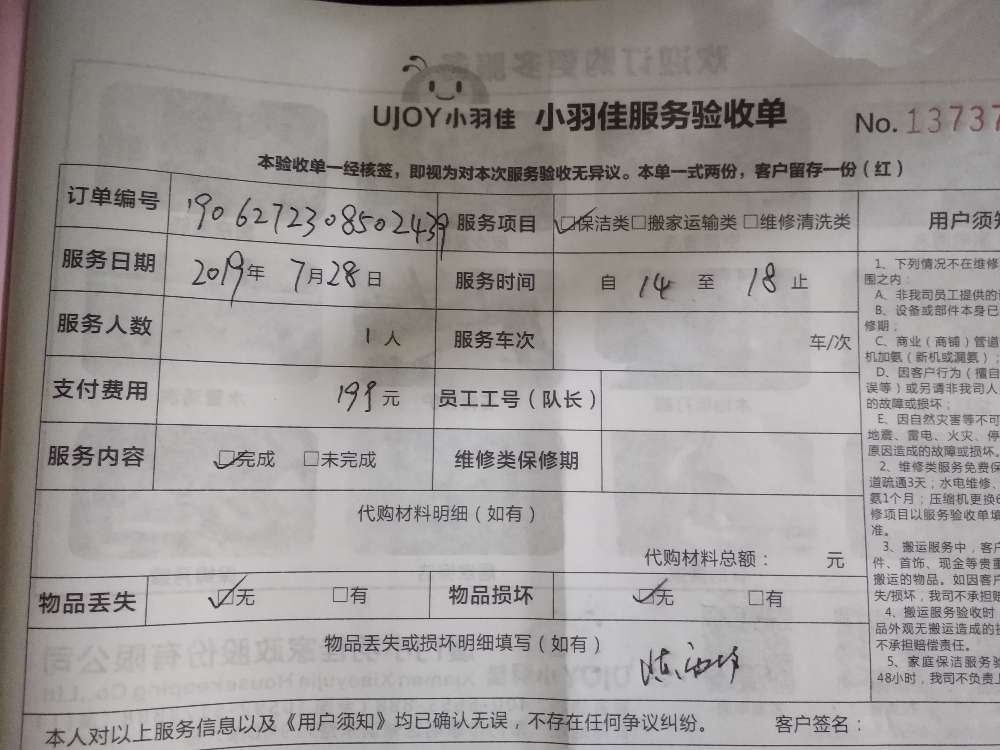 UJOY小羽佳 小羽佳服务验收单 No. 13737
本验收单一经核签，即视为对本次服务验收无异议。本单一式两份，客户留存一份（红）
订单编号 1906272308502439 服务项目 ☑保洁类□搬家运输类 □维修清洗类 用户须知
服务日期 2019年 7月28日 服务时间 自 14 至 18 止
服务人数 1人 服务车次 车/次
支付费用 199元 员工工号（队长）
服务内容 ☑完成 □未完成 维修类保修期
代购材料明细（如有）
代购材料总额： 元
物品丢失 ☑无 □有 物品损坏 ☑无 □有
物品丢失或损坏明细填写（如有）
本人对以上服务信息以及《用户须知》均已确认无误，不存在任何争议纠纷。 客户签名：
1、下列情况不在维修
围之内：
A、非我司员工提供的
B、设备或部件本身已
修期；
C、商业（商铺）管道
机加氨（新机或漏氨）；
D、因客户行为（擅自
误等）或另请非我司人
的故障或损坏；
E、因自然灾害等不可
地震、雷电、火灾、停
原因造成的故障或损坏。
2、维修类服务免费保
道疏通3天；水电维修、
氨1个月；压缩机更换6
修项目以服务验收单填
准。
3、搬运服务中，客户
件、首饰、现金等贵重
搬运的物品。如因客户
失/损坏，我司不承担赔
4、搬运服务验收时
品外观无搬运造成的损
不承担赔偿责任。
5、家庭保洁服务验
48小时，我司不负责上